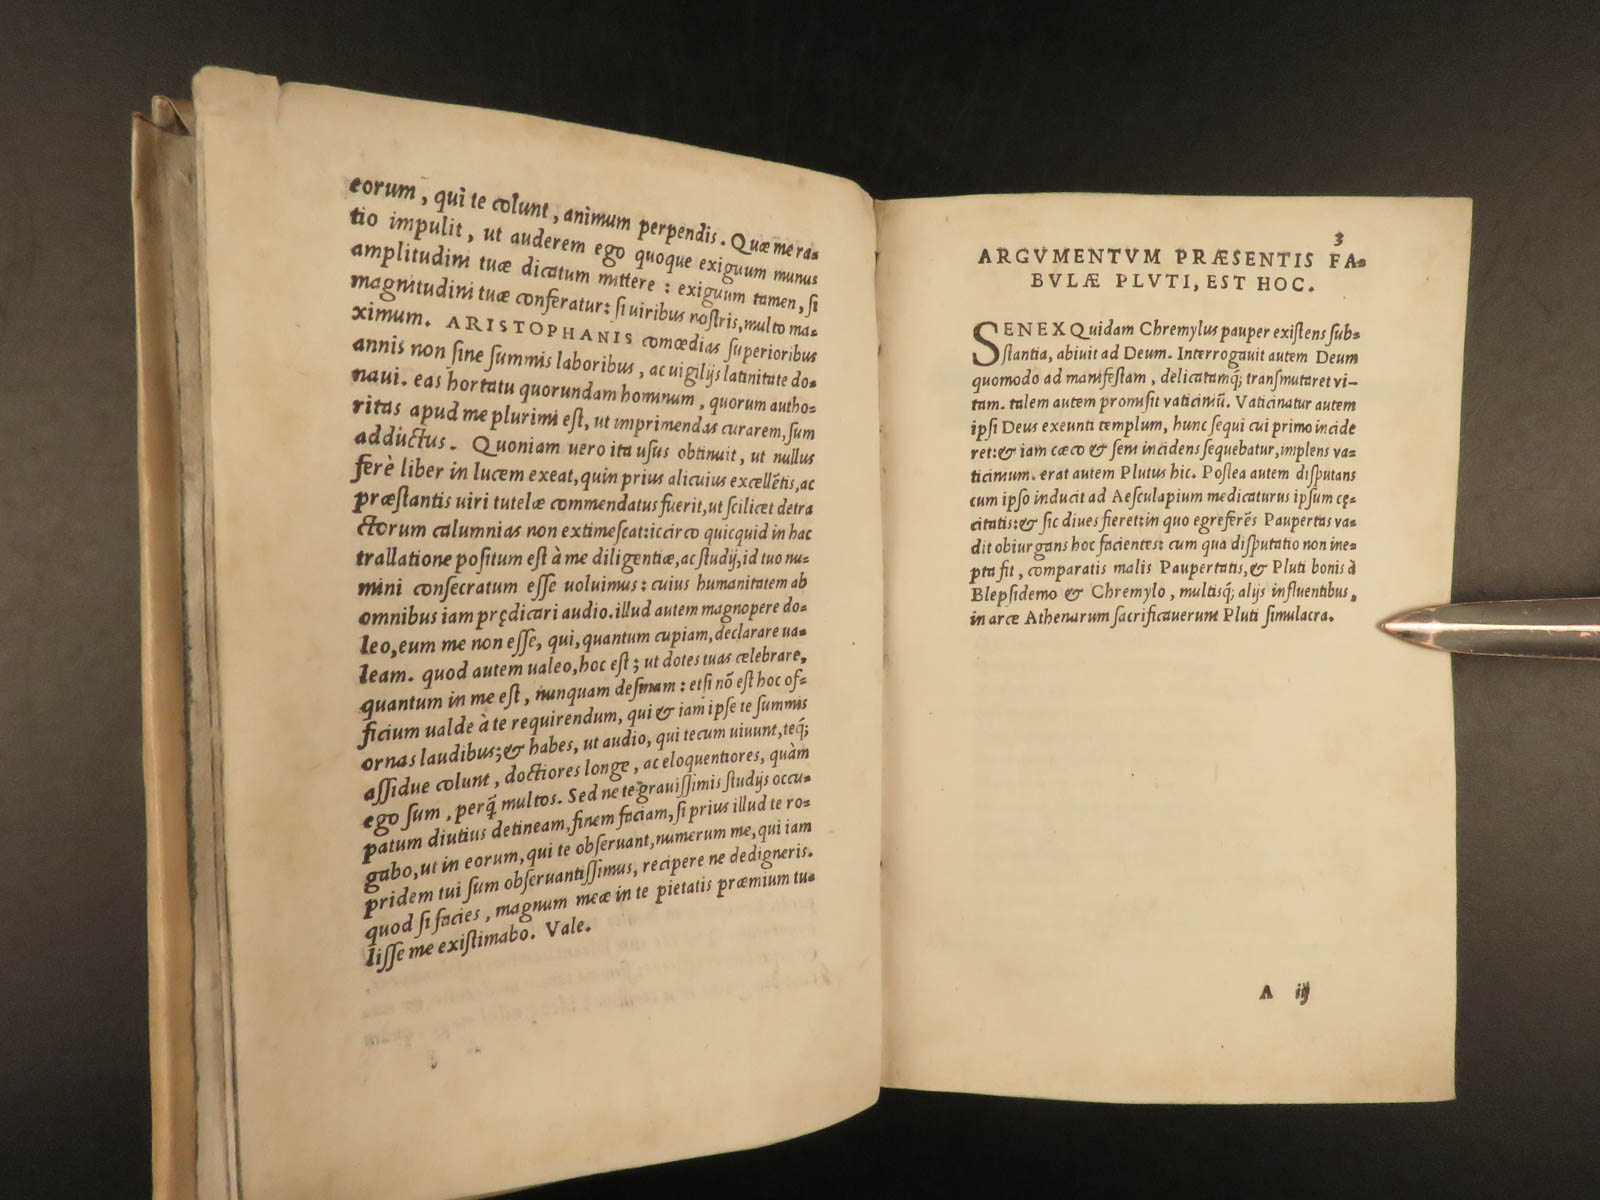 eorum, qui te colunt, animum perpendis. Quæ me ra-
tio impulit, ut auderem ego quoque exiguum munus
amplitudini tuæ dicatum mittere: exiguum tamen, si
magnitudini tuæ conferatur: si uiribus nostris, multo ma-
ximum. ARISTOPHANIS comœdias superioribus
annis non sine summis laboribus, ac uigilijs latinitate do-
naui. eas hortatu quorundam hominum, quorum autho-
ritas apud me plurimi est, ut imprimendas curarem, sum
adductus. Quoniam uero ita usus obtinuit, ut nullus
ferè liber in lucem exeat, quin prius alicuius excellẽtis, ac
præstantis uiri tutelæ commendatus fuerit, ut scilicet detra
ctorum calumnias non extimescat: iccirco quicquid in hac
trallatione positum est à me diligentiæ, ac studij, id tuo nu-
mini consecratum esse uoluimus: cuius humanitatem ab
omnibus iam prędicari audio. illud autem magnopere do-
leo, eum me non esse, qui, quantum cupiam, declarare ua-
leam. quod autem ualeo, hoc est; ut dotes tuas celebrare,
quantum in me est, nunquam desinam: etsi nõ est hoc of-
ficium ualde à te requirendum, qui & iam ipse te summis
ornas laudibus; & habes, ut audio, qui tecum uiuunt, teq́;
assidue colunt, doctiores longe, ac eloquentiores, quàm
ego sum, perq́ multos. Sed ne te grauissimis studijs occu-
patum diutius detineam, finem faciam, si prius illud te ro-
gabo, ut in eorum, qui te obseruant, numerum me, qui iam
pridem tui sum obseruantissimus, recipere ne dedigneris.
quod si facies, magnum meæ in te pietatis præmium tu-
lisse me existimabo. Vale.
3
ARGVMENTVM PRÆSENTIS FA-
BVLÆ PLVTI, EST HOC.
SENEX Quidam Chremylus pauper existens sub-
stantia, abiuit ad Deum. Interrogauit autem Deum
quomodo ad manifestam, delicatamq́; transmutaret vi-
tam. talem autem promisit vaticiniũ. Vaticinatur autem
ipsi Deus exeunti templum, hunc sequi cui primo incide
ret: & iam cæco & sem incidens sequebatur, implens va-
ticinium. erat autem Plutus hic. Postea autem disputans
cum ipso inducit ad Aesculapium medicaturus ipsum cę-
citatis: & sic diues fieret: in quo egreferẽs Paupertas va-
dit obiurgans hoc facientes: cum qua disputatio non ine-
pta fit, comparatis malis Paupertatis, & Pluti bonis à
Blepsidemo & Chremylo, multisq́; alijs influentibus,
in arce Athenarum sacrificauerunt Pluti simulacra.
A iij